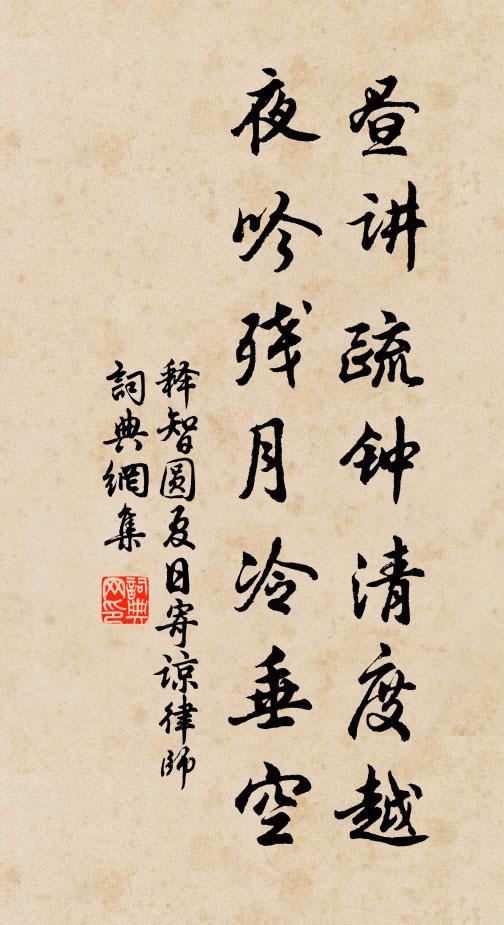 昼讲疏钟清度越
夜吟残月冷垂空
释智圆夏日寄谅律师
詞典網集
詞典网印